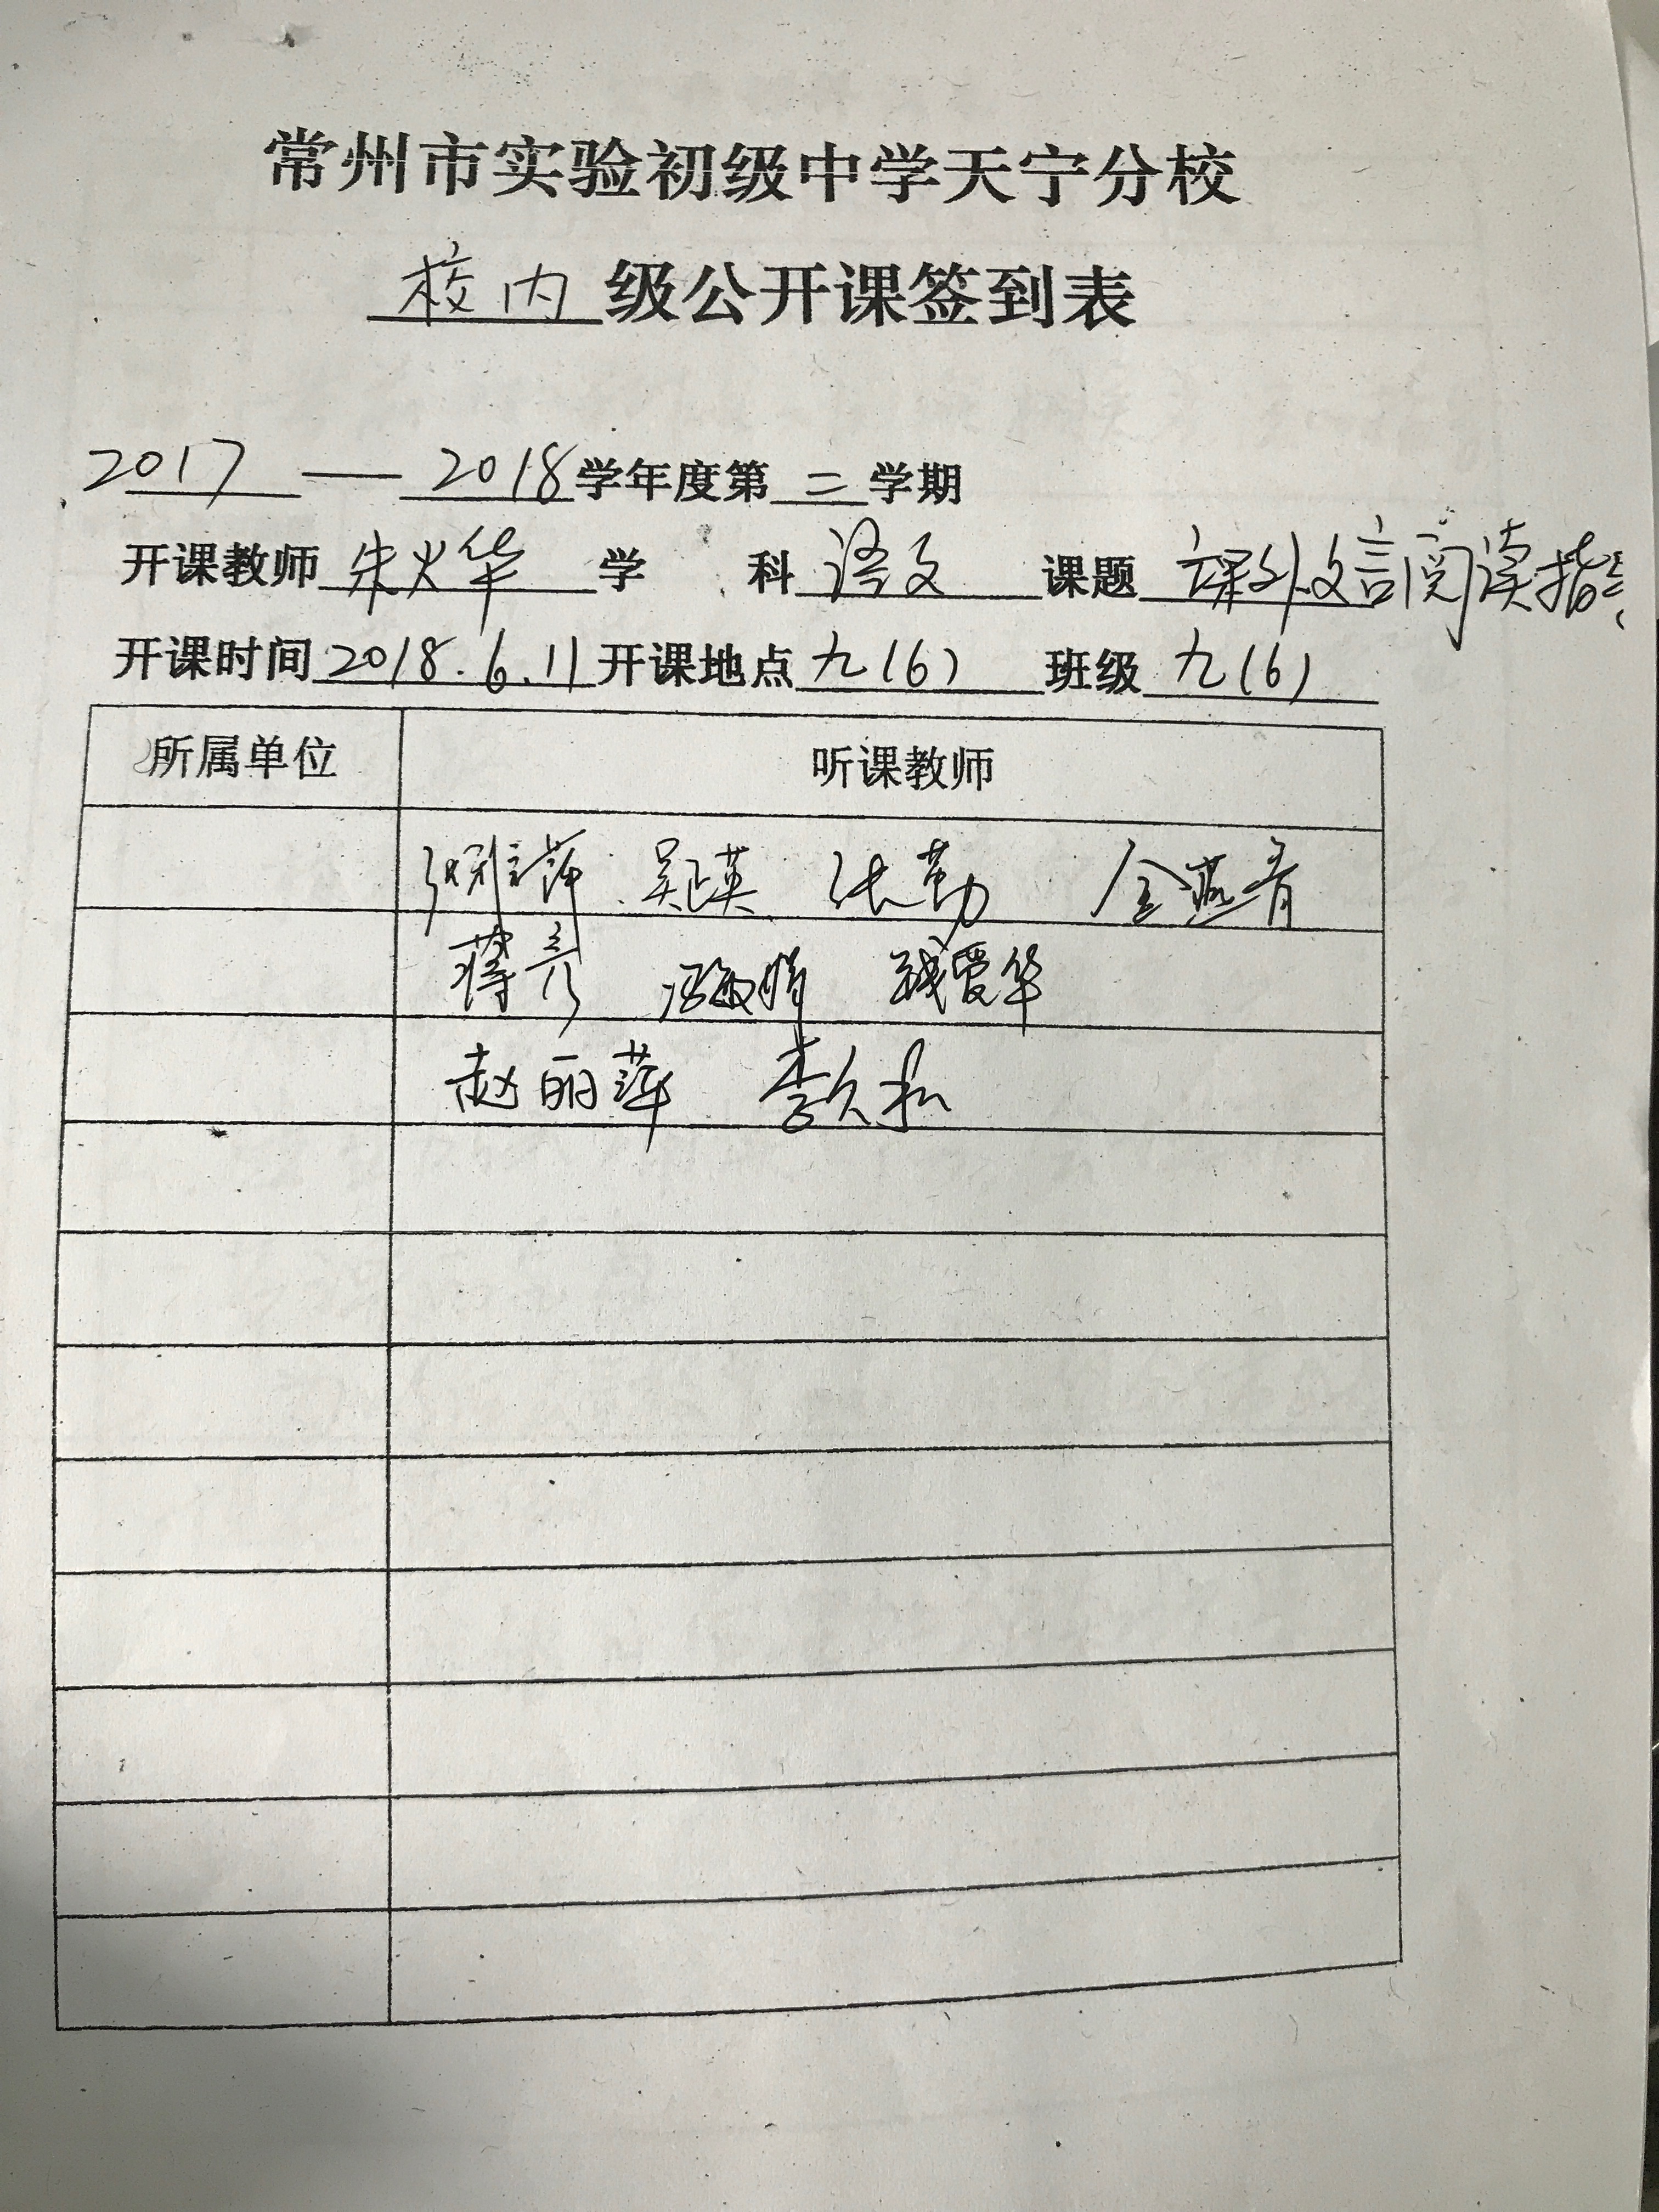 常州市实验初级中学天宁分校
校内级公开课签到表
2017—2018学年度第二学期
开课教师朱火华学 科语文课题课外文言阅读指导
开课时间2018.6.11开课地点九(6)班级九(6)
所属单位 听课教师
吴英 张勤 金燕青
蒋亮 钱爱华
赵丽萍 李久松